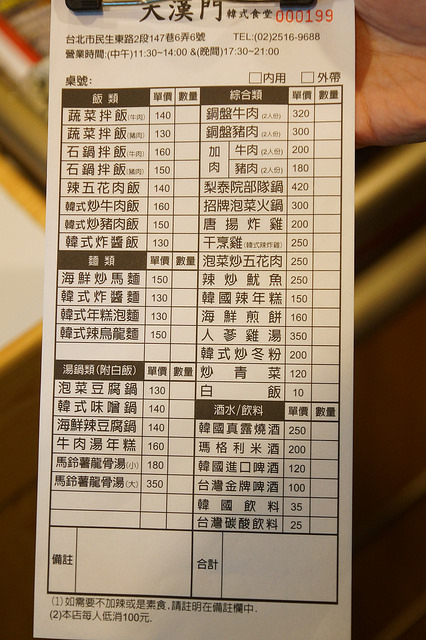 大漢門 韓式食堂 000199
台北市民生東路2段147巷6弄6號 TEL:(02)2516-9688
營業時間:(中午)11:30~14:00 &(晚間)17:30~21:00
桌號: □內用 □外帶
飯類 單價 數量
蔬菜拌飯(牛肉) 140
蔬菜拌飯(豬肉) 130
石鍋拌飯(牛肉) 160
石鍋拌飯(豬肉) 150
辣五花肉飯 140
韓式炒牛肉飯 160
韓式炒豬肉飯 150
韓式炸醬飯 130
麵類 單價 數量
海鮮炒馬麵 150
韓式炸醬麵 130
韓式年糕泡麵 130
韓式辣烏龍麵 150
湯鍋類(附白飯) 單價 數量
泡菜豆腐鍋 130
韓式味噌鍋 140
海鮮辣豆腐鍋 140
牛肉湯年糕 160
馬鈴薯龍骨湯(小) 180
馬鈴薯龍骨湯(大) 350
綜合類 單價 數量
銅盤牛肉(2人份) 320
銅盤豬肉(2人份) 300
加肉 牛肉(2人份) 200
豬肉(2人份) 180
梨泰院部隊鍋 420
招牌泡菜火鍋 300
唐揚炸雞 200
干烹雞(韓式辣炸雞) 250
泡菜炒五花肉 250
辣炒魷魚 250
韓國辣年糕 150
海鮮煎餅 160
人蔘雞湯 350
韓式炒冬粉 200
炒青菜 120
白飯 10
酒水/飲料 單價 數量
韓國真露燒酒 250
瑪格利米酒 200
韓國進口啤酒 120
台灣金牌啤酒 100
韓國飲料 35
台灣碳酸飲料 25
備註 合計
(1)如需要不加辣或是素食,請註明在備註欄中.
(2)本店每人低消100元.